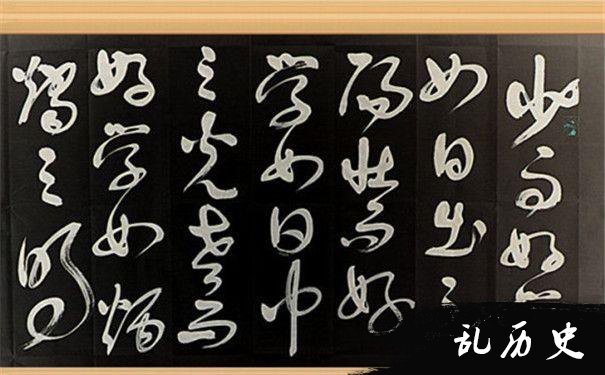 少而好学
如日出之
阳壮而好
学如日中
之光老而
好学如炳
烛之明
乱历史